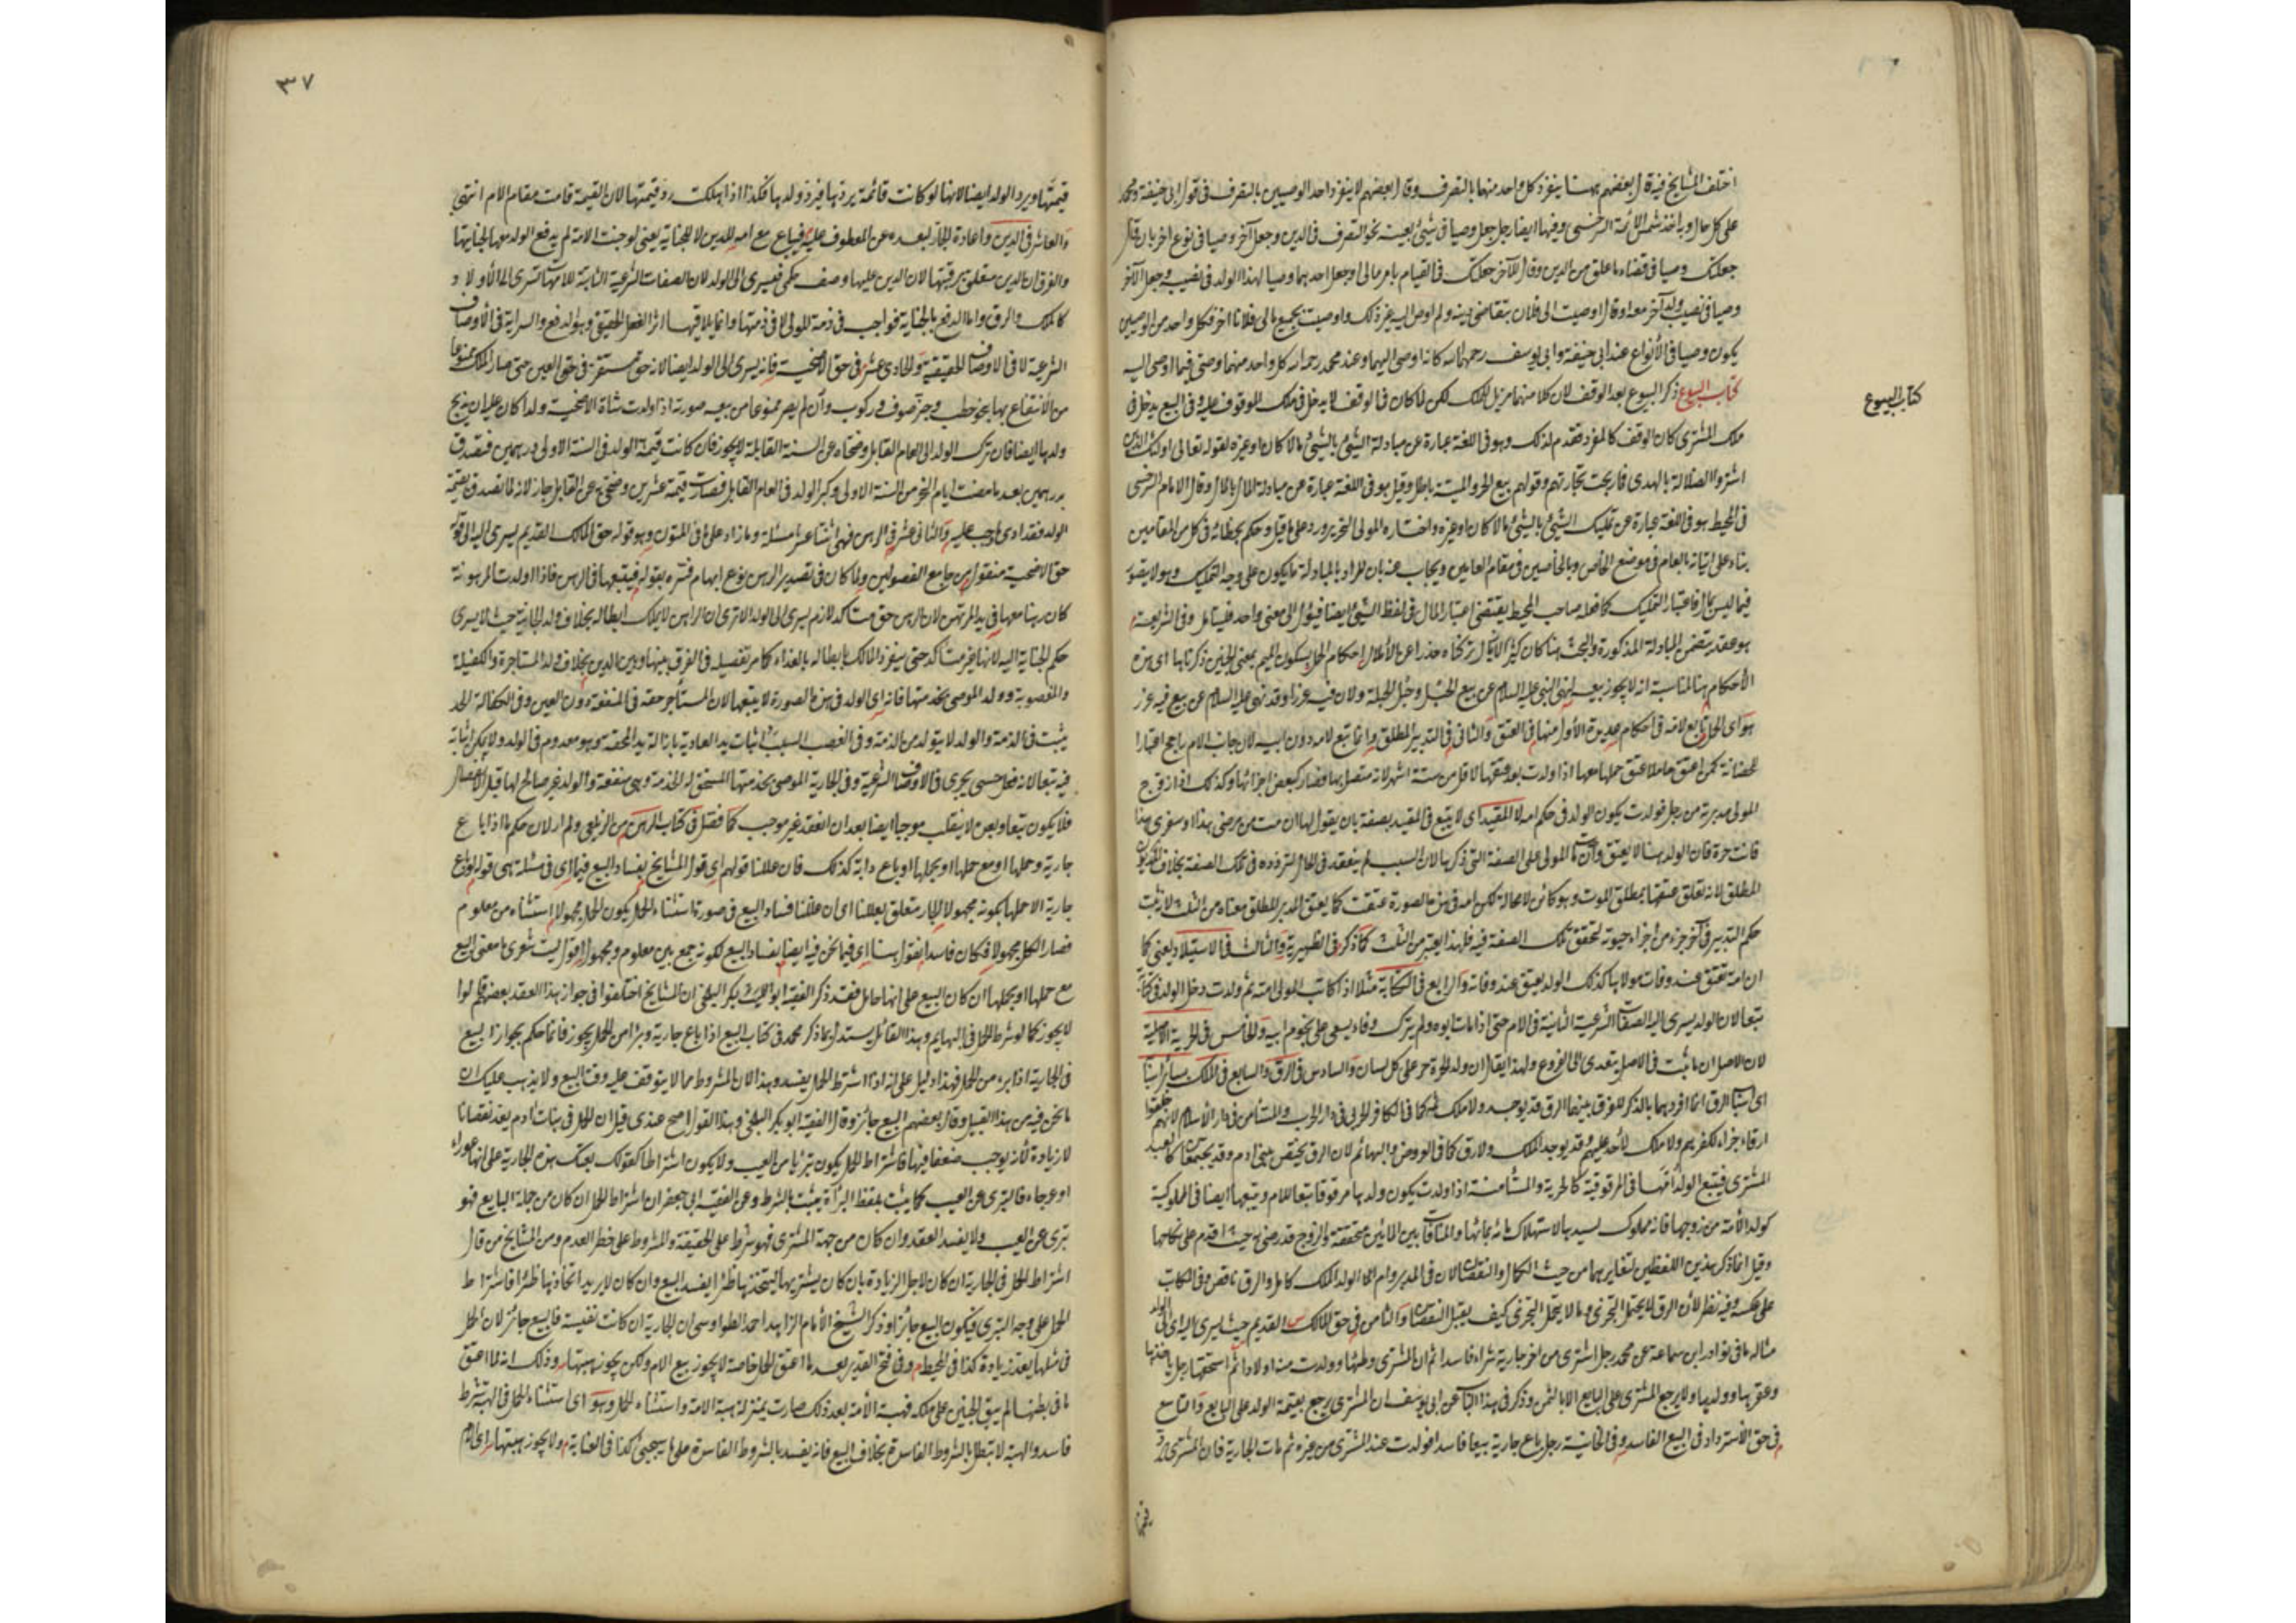 اختلف المشايخ فيه قال بعضهم ههنا ينفرد كل واحد منهما بالتصرف وقال بعضهم لا ينفرد احد الوصيين بالتصرف في قول ابي حنيفة ومحمد
على كل حال وبه اخذ شمس الأئمة السرخسي وفيها ايضا رجل جعل وصيا في شيء بعينه نحو التصرف في الدين وجعل آخر وصيا في نوع اخر بان قال
جعلتك وصيا في قضاء ما علي من الدين وقال للآخر جعلتك في القيام بامر مالي او جعل احدهما وصيا لهذا الولد في نصيبه وجعل الآخر
وصيا في نصيب ولد آخر معه او قال اوصيت الى فلان بتقاضي ديني ولم اوص اليه غير ذلك واوصيت بجميع مالي فلانا اخر فكل واحد من الوصيين
يكون وصيا في الأنواع عند ابي حنيفة وابي يوسف رحمهما الله كانه اوصى اليهما وعند محمد رحمه الله كل واحد منهما وصي فيما اوصى اليه
كتاب البيوع
كتاب البيوع ذكر البيوع بعد الوقف لان كلا منهما مزيل للملك لكن لما كان في الوقف لا يدخل في ملك الموقوف عليه وفي البيع يدخل في
ملك المشتري كان الوقف كالمفرد فقدم لذلك وهو في اللغة عبارة عن مبادلة الشيء بالشيء مالا كان او غيره لقوله تعالى اولئك الذين
اشتروا الضلالة بالهدى فما ربحت تجارتهم وقولهم بيع الحر والميتة باطل وقيل هو في اللغة عبارة عن مبادلة المال بالمال وقال الامام السرخسي
في المحيط هو في اللغة عبارة عن تمليك الشيء بالشيء مالا كان او غيره واختاره المولى
بناء على اتيانه بالعام في موضع الخاص
فيما ليس بمال فاعتبار التمليك كما فعله صاحب المحيط يقتضي اعتبار المال في لفظ الشيء ايضا فيؤل الى معنى واحد فليتأمل وفي الشريعة
هو عقد يتضمن المبادلة المذكورة
الأحكام هنا لمناسبة انه لا يجوز بيعه لنهي النبي عليه السلام عن بيع الحبل وحبل الحبلة ولان فيه غررا وقد نهى عليه السلام عن بيع فيه غرر
هو اى الحمل تابع لامه في احكام عديدة الأول منها في العتق والثاني في التدبير المطلق وانما تبع لامه دون ابيه لان جانب الام راجح اعتبارا
للحضانة كمن اعتق حاملا عتق حملها معها اذا ولدت بعد عتقها لاقل من ستة اشهر لانه متصل بها فصار كبعض اجزائها وكذلك اذا زوج
المولى مدبرته من رجل فولدت يكون الولد في حكم امه لا المقيد اى لا يتبع في المقيد بصفة بان يقول لها ان مت من مرضي هذا او سفري هذا
فانت حرة فان الولد هنا لا يعتق وان مات المولى على الصفة التي ذكرها لان السبب لم ينعقد في الحال لتردده في تلك الصفة بخلاف التدبير
المطلق لانه تعلق عتقها بمطلق الموت وهو كائن لا محالة لكن امه في هذه الصورة عتقت كما يعتق المدبر المطلق معناه من الثلث لانه ثبت
حكم التدبير في آخر جزء من اجزاء حيوته لتحقق تلك الصفة فيه فلهذا يعتبر من الثلث كما ذكر في الظهيرية والثالث في الاستيلاد يعني كما
ان امه تعتق عند وفات مولاها كذلك الولد يعتق عند وفاته والرابع في الكتابة مثلا اذا كاتب المولى امته ثم ولدت دخل الولد في كتابة
تبعا لان الولد يسري اليه الصفات الشرعية الثابتة في الام حتى اذا مات ابوه ولم يترك وفاء يسعى على نجوم ابيه والخامس في الحرية الاصلية
لان الاصل ان ما ثبت في الاصل يتعدى الى الفروع ولهذا يقال ان ولد الحرة حر على كل لسان والسادس في الرق والسابع في الملك بسائر اسبابه
اى اسباب الرق انما افردهما بالذكر للفرق بينهما الرق قد يوجد ولا ملك ثمه كما في الكافر الحربي في دار الحرب والمستأمن في دار الأسلام لانهم خلقوا
ارقاء جزاء لكفرهم ولا ملك لأحد عليهم وقد يوجد الملك ولا رق كما في العروض والبهائم لان الرق يختص ببني ادم وقد يجتمعان كالعبد
المشترى فيتبع الولد أمها في المرقوقية كالحرية والمستأمنة اذا ولدت يكون ولدها مرقوقا تبعا للام ويتبعها ايضا في المملوكية
كولد الأمة من زوجها فانه مملوك لسيدها لاستهلاك مائه بمائها والمنافات بين المائين متحققة والزوج قد رضي به حيث اقدم على نكاحها
وقيل انما ذكر هذين اللفظين لتغايرهما من حيث الكمال والنقصان لان في المدبر وام الولد الملك كامل والرق ناقص وفي المكاتب
على عكسه وفيه نظر لأن الرق لا يحتمل التجزي وما لا يحتمل التجزي كيف يقبل النقصان والثامن في حق المالك القديم حيث يسري اليه اى الى الولد
مثاله ما في نوادر ابن سماعة عن محمد رجل اشترى من اخر جارية شراء فاسدا ثم ان المشتري وطئها وولدت منه اولادا ثم استحقها رجل ياخذها
وعقرها وولدها ولا يرجع المشتري على البايع الا بالثمن وذكر في هذا الباب عن ابي يوسف ان المشتري يرجع بقيمة الولد على البايع والتاسع
في حق الأسترداد في البيع الفاسد وفي الخانية رجل باع جارية بيعا فاسدا فولدت عند المشتري من غيره ثم ماتت الجارية فان المشتري يرد
قيمتها
٣٧
قيمتها ويرد الولد ايضا لانها لو كانت قائمة يردها فيرد ولدها فكذا اذا هلكت رد قيمتها لان القيمة قامت مقام الام انتهى
والعاشر في الدين واعادة الجار لبعده عن المعطوف عليه فيباع مع امه للدين لا للجناية يعني لو جنت الامة لم يدفع الولد معها لجنايتها
والفرق ان الدين متعلق برقبتها لان الدين عليها وصف حكمي فيسري الى الولد لان الصفات الشرعية الثابتة للامهات تسري الى الأولاد
كالملك والرق واما الدفع بالجناية فواجب في ذمة المولى لا في ذمتها وانما يلاقيها اثر الفعل الحقيقي وهو الدفع والسراية في الأوصاف
الشرعية لا في الاوصاف الحقيقية والحادي عشر في حق الاضحية فانه يسري الى الولد ايضا لانه حق مستقر في حق العين حتى صار المالك ممنوعا
من الانتفاع بها بنحو حلب وجز صوف وركوب وان لم يصر ممنوعا من بيعه صورته اذا ولدت شاة الاضحية ولدا كان عليه ان يذبح
ولدها ايضا فان ترك الولد الى العام القابل وضحاه عن السنة القابلة لا يجوز فان كانت قيمة الولد في السنة الاولى درهمين فتصدق
بدرهمين بعد ما مضت ايام النحر من السنة الاولى وكبر الولد في العام القابل فصارت قيمته عشرين وضحى به عن القابل جاز لانه لما تصدق بقيمة
الولد فقد ادى ما وجب عليه والثاني عشر في الرهن فهي اثنتا عشر مسئلة وما زاد على ما في المتون وهو قوله حق المالك القديم يسري اليه الى قوله
حق الاضحية منقول من جامع الفصولين ولما كان في تصدير الرهن نوع ابهام فسره بقوله فيتبعها في الرهن فاذا ولدت المرهونة
كان رهنا معها في يد المرتهن لان الرهن حق متأكد لازم يسري الى الولد الا ترى ان الراهن لا يملك ابطاله بخلاف ولد الجانية حيث لا يسري
حكم الجناية اليه لانها غير متأكد حتى ينفرد المالك بابطاله بالفداء كما مر تفصيله في الفرق بينها وبين الدين بخلاف ولد المستاجرة والكفيلة
والمغصوبة وولد الموصى بخدمتها فانه اى الولد في هذه الصورة لا يتبعها لان المستأجر حقه في المنفعة دون العين وفي الكفالة الحق
يثبت في الذمة والولد لا يتولد من الذمة وفي الغصب السبب اثبات يد العادية بازالة يد المحقة وهو معدوم في الولد ولا يمكن اثباته
فيه تبعا لانه فعل حسي يجري في الاوصاف الشرعية وفي الجارية الموصى بخدمتها المستحق له الخدمة وهي منفعة والولد غير صالح لها قبل الانفصال
فلا يكون تبعا وبعده لا ينقلب موجبا ايضا بعد ان انعقد غير موجب كما فصل في كتاب الرهن من الزيلعي ولم ار الان حكم ما اذا باع
جارية وحملها او مع حملها او بحملها او باع دابة كذلك فان عللنا قولهم اى قول المشايخ بفساد البيع فيما اى في مسئلة هي قوله لو باع
جارية الا حملها بكونه مجهولا الجار متعلق بعللنا اى ان عللنا فساد البيع في صورة استثناء الحمل يكون الحمل مجهولا استثناه من معلوم
فصار الكل مجهولا فكان فاسدا نقول هنا اى فيما نحن فيه ايضا بفساد البيع لكونه جمع بين معلوم ومجهول اقول ليت شعري ما معنى البيع
مع حملها او بحملها ان كان البيع على انها حامل فقد ذكر الفقيه ابو الليث بكر البلخي ان المشايخ اختلفوا في جواز هذا العقد بعضهم قالوا
لا يجوز كما لو شرط الحمل في البهايم وهذا القائل يستدل بما ذكر محمد في كتاب البيع اذا باع جارية وتبرا من الحمل يجوز فانما حكم بجواز البيع
في الجارية اذا برء من الحمل فهذا دليل على انه اذا اشترط الحمل يفسد وهذا لان المشروط مما لا يتوقف عليه وقت البيع ولا يذهب عليك ان
ما نحن فيه من هذا القبيل وقال بعضهم البيع جائز وقال الفقيه ابو بكر البلخي وهذا القول اصح عندي قيل ان الحمل في بنات آدم يعد نقصانا
لا زيادة لأنه يوجب ضعفا فيها فاشتراط الحمل يكون تبرئا من العيب ولا يكون اشتراطا كقولك بعتك هذه الجارية على انها عوراء
او عرجاء فالتبري عن العيب كما يثبت بلفظ البرآة يثبت بالشرط وعن الفقيه ابي جعفر ان اشتراط الحمل ان كان من جهة البايع فهو
تبري عن العيب ولا يفسد العقد وان كان من جهة المشتري فهو شرط على الحقيقة والمشروط على خطر العدم ومن المشايخ من قال
اشتراط الحمل في الجارية ان كان لاجل الزيادة بان كان يشتريها ليتخذها ظئرا يفسد البيع وان كان لا يريد اتخاذها ظئرا فاشتراط
الحمل على وجه التبري فيكون البيع جائزا وذكر الشيخ الأمام الزاهد احمد الطواويسي ان الجارية ان كانت نفيسة فالبيع جائز لان الحمل
في مثلها يعد زيادة كذا في المحيط وفي فتح القدير بعد ما اعتق الحمل خاصة لا يجوز بيع الام ولكن يجوز هبتها وذلك انه لما اعتق
ما في بطنها لم يبق الجنين على ملكه فهبة الأمة بعد ذلك صارت بمنزلة هبة الامة واستثناء الحمل وهو اى استثناء الحمل في الهبة شرط
فاسد والهبة لا تبطل بالشروط الفاسدة بخلاف البيع فانه يفسد بالشروط الفاسدة على ما سيجيء كذا في العناية ولا يجوز هبتها اى الام